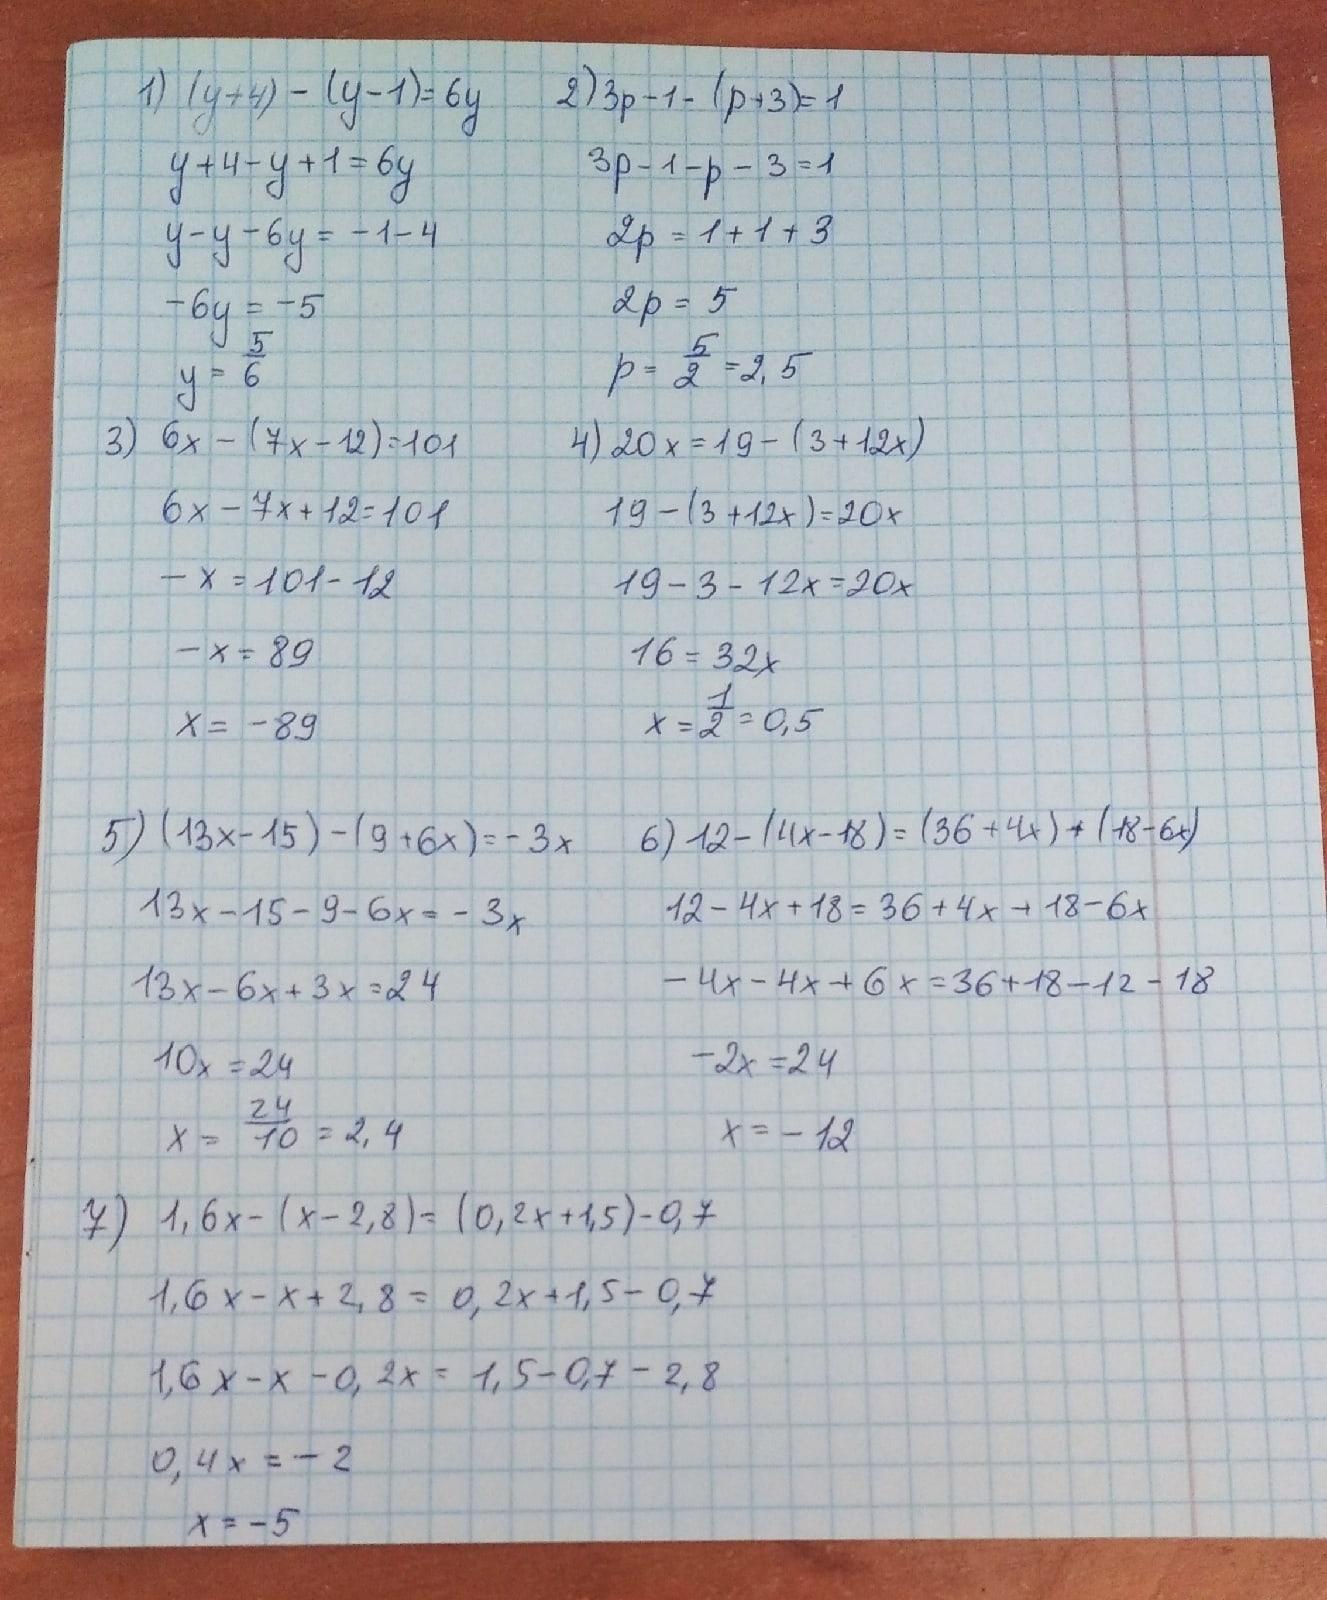 1) (y+4) - (y-1)=6y
y+4-y+1=6y
y-y-6y = -1-4
-6y = -5
y = 5/6
2) 3p-1-(p+3)=1
3p-1-p-3=1
2p = 1+1+3
2p = 5
p = 5/2 = 2,5
3) 6x-(7x-12)=101
6x-7x+12=101
-x = 101-12
-x = 89
x = -89
4) 20x=19-(3+12x)
19-(3+12x)=20x
19-3-12x=20x
16 = 32x
x = 1/2 = 0,5
5) (13x-15)-(9+6x)=-3x
13x-15-9-6x=-3x
13x-6x+3x=24
10x = 24
x = 24/10 = 2,4
6) 12-(4x-18)=(36+4x)+(18-6x)
12-4x+18=36+4x+18-6x
-4x-4x+6x=36+18-12-18
-2x = 24
x = -12
7) 1,6x-(x-2,8)=(0,2x+1,5)-0,7
1,6x-x+2,8=0,2x+1,5-0,7
1,6x-x-0,2x=1,5-0,7-2,8
0,4x = -2
x = -5